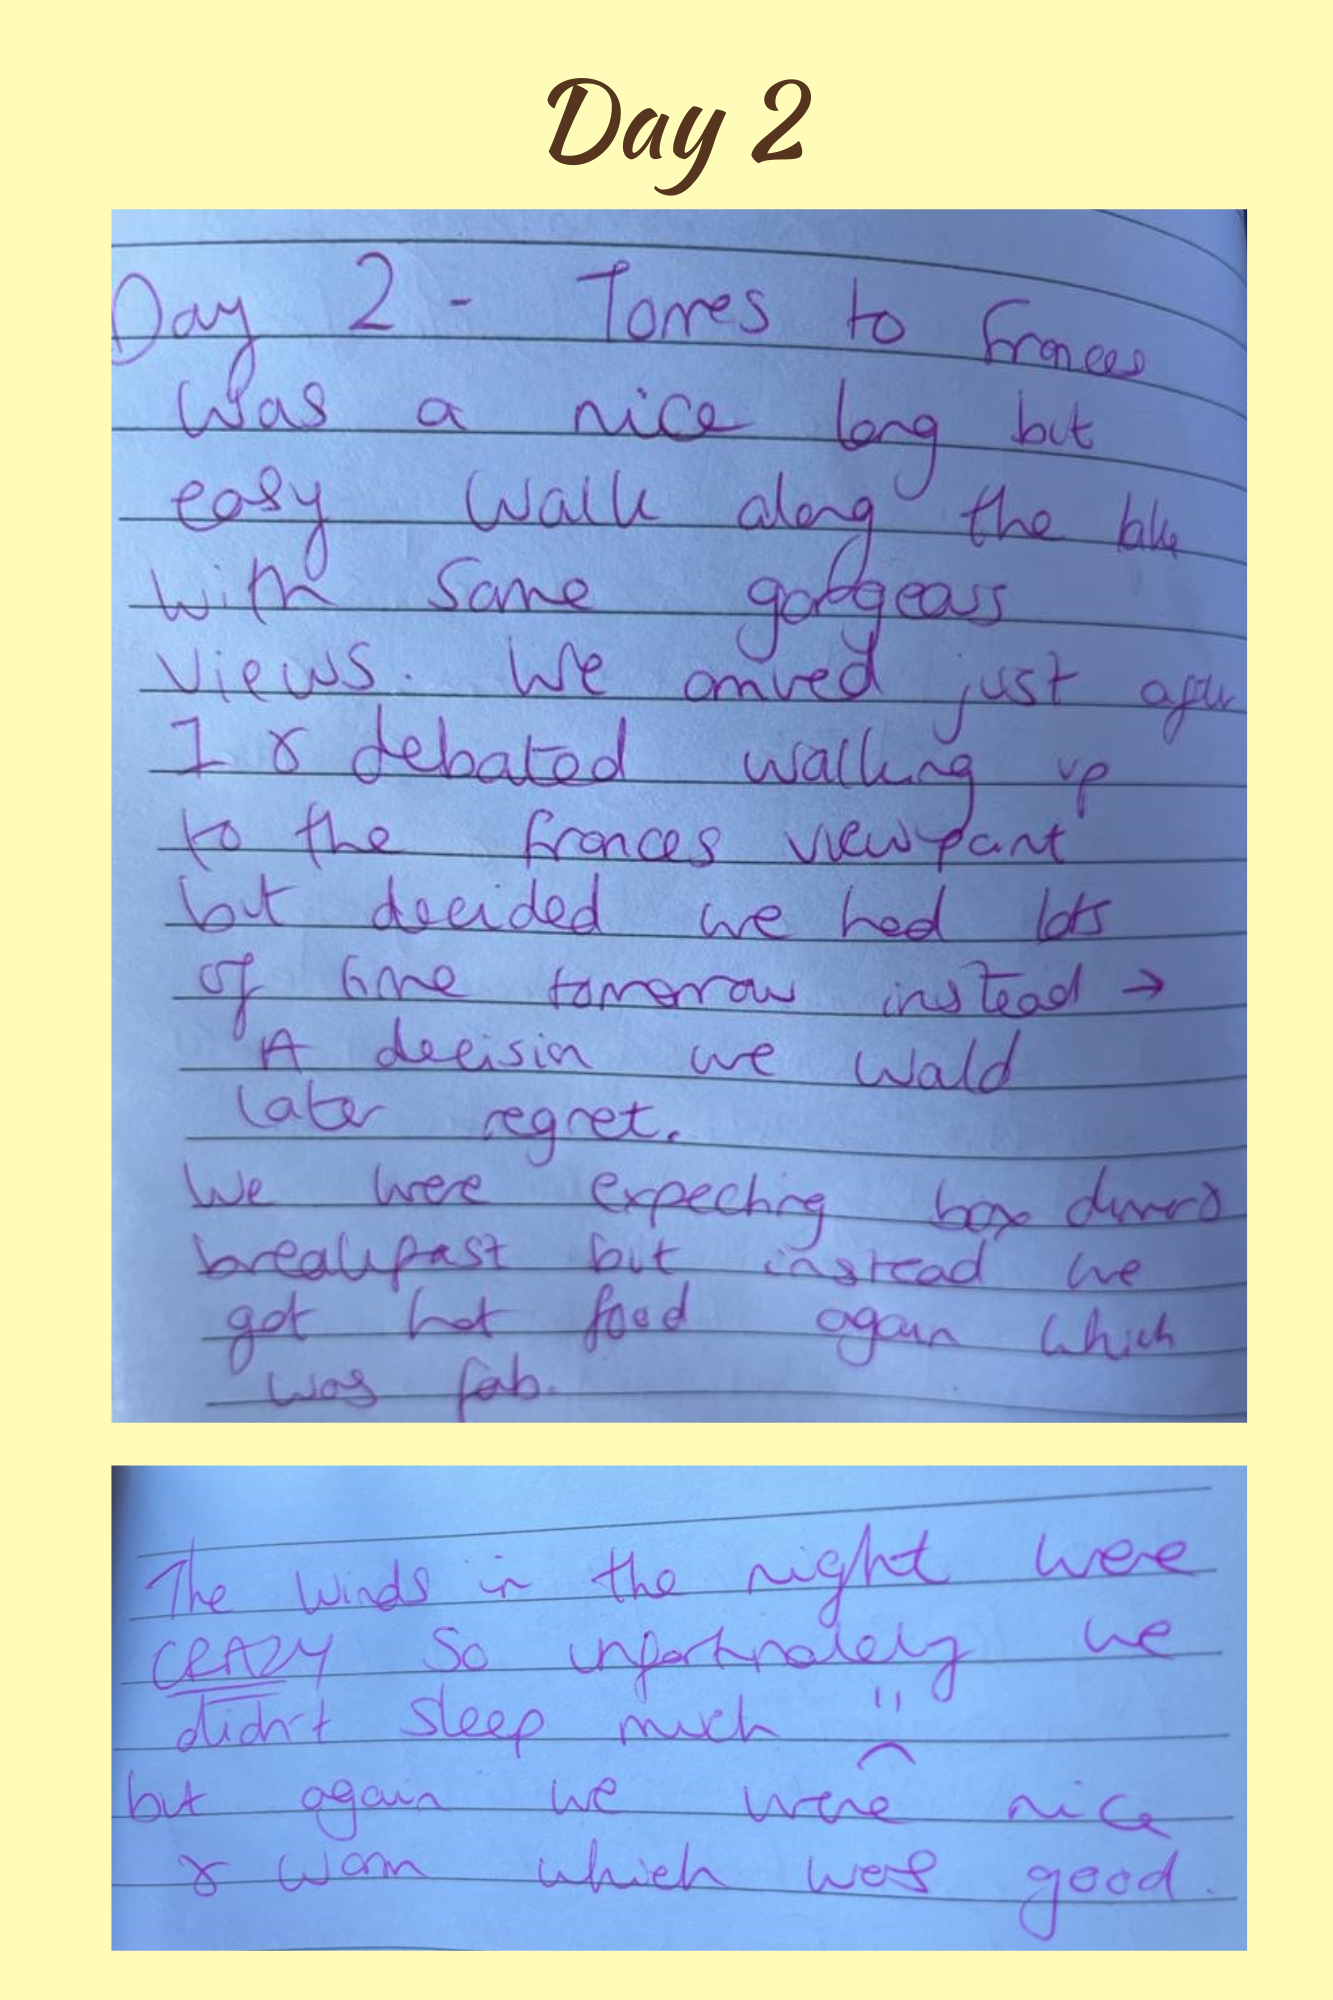 Day 2
Day 2 - Torres to Frances
was a nice long but
easy walk along the lake
with some gorgeous
views. We arrived just after
1 & debated walking up
to the Frances viewpoint
but decided we had lots
of time tomorrow instead →
A decision we would
later regret.
We were expecting box dinner &
breakfast but instead we
got hot food again which
was fab.
The winds in the night were
CRAZY so unfortnately we
didn't sleep much
but again we were nice
& warm which was good.